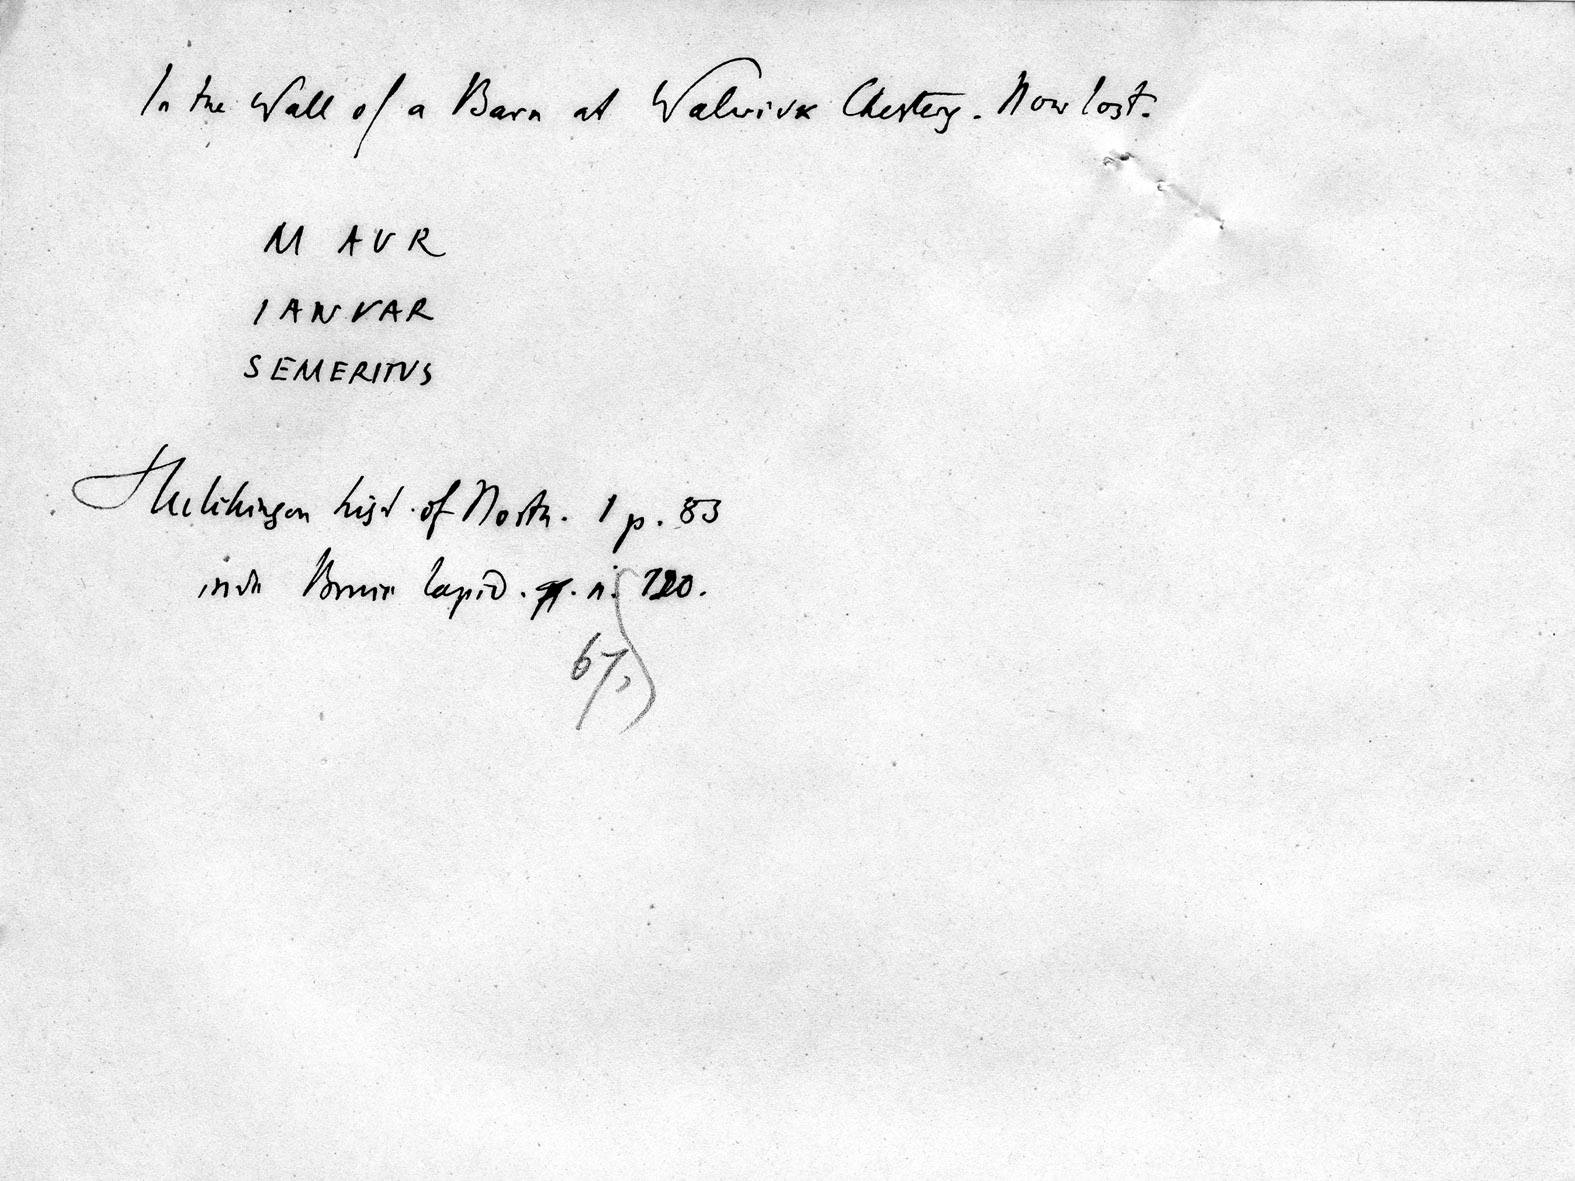 In the Wall of a Barn at Walwick Chesters. Now lost.
M AVR
IANVAR
SEMERITVS
Hutchinson hist. of North. 1 p. 83
inde Bruce lapid. n. 120.
67,